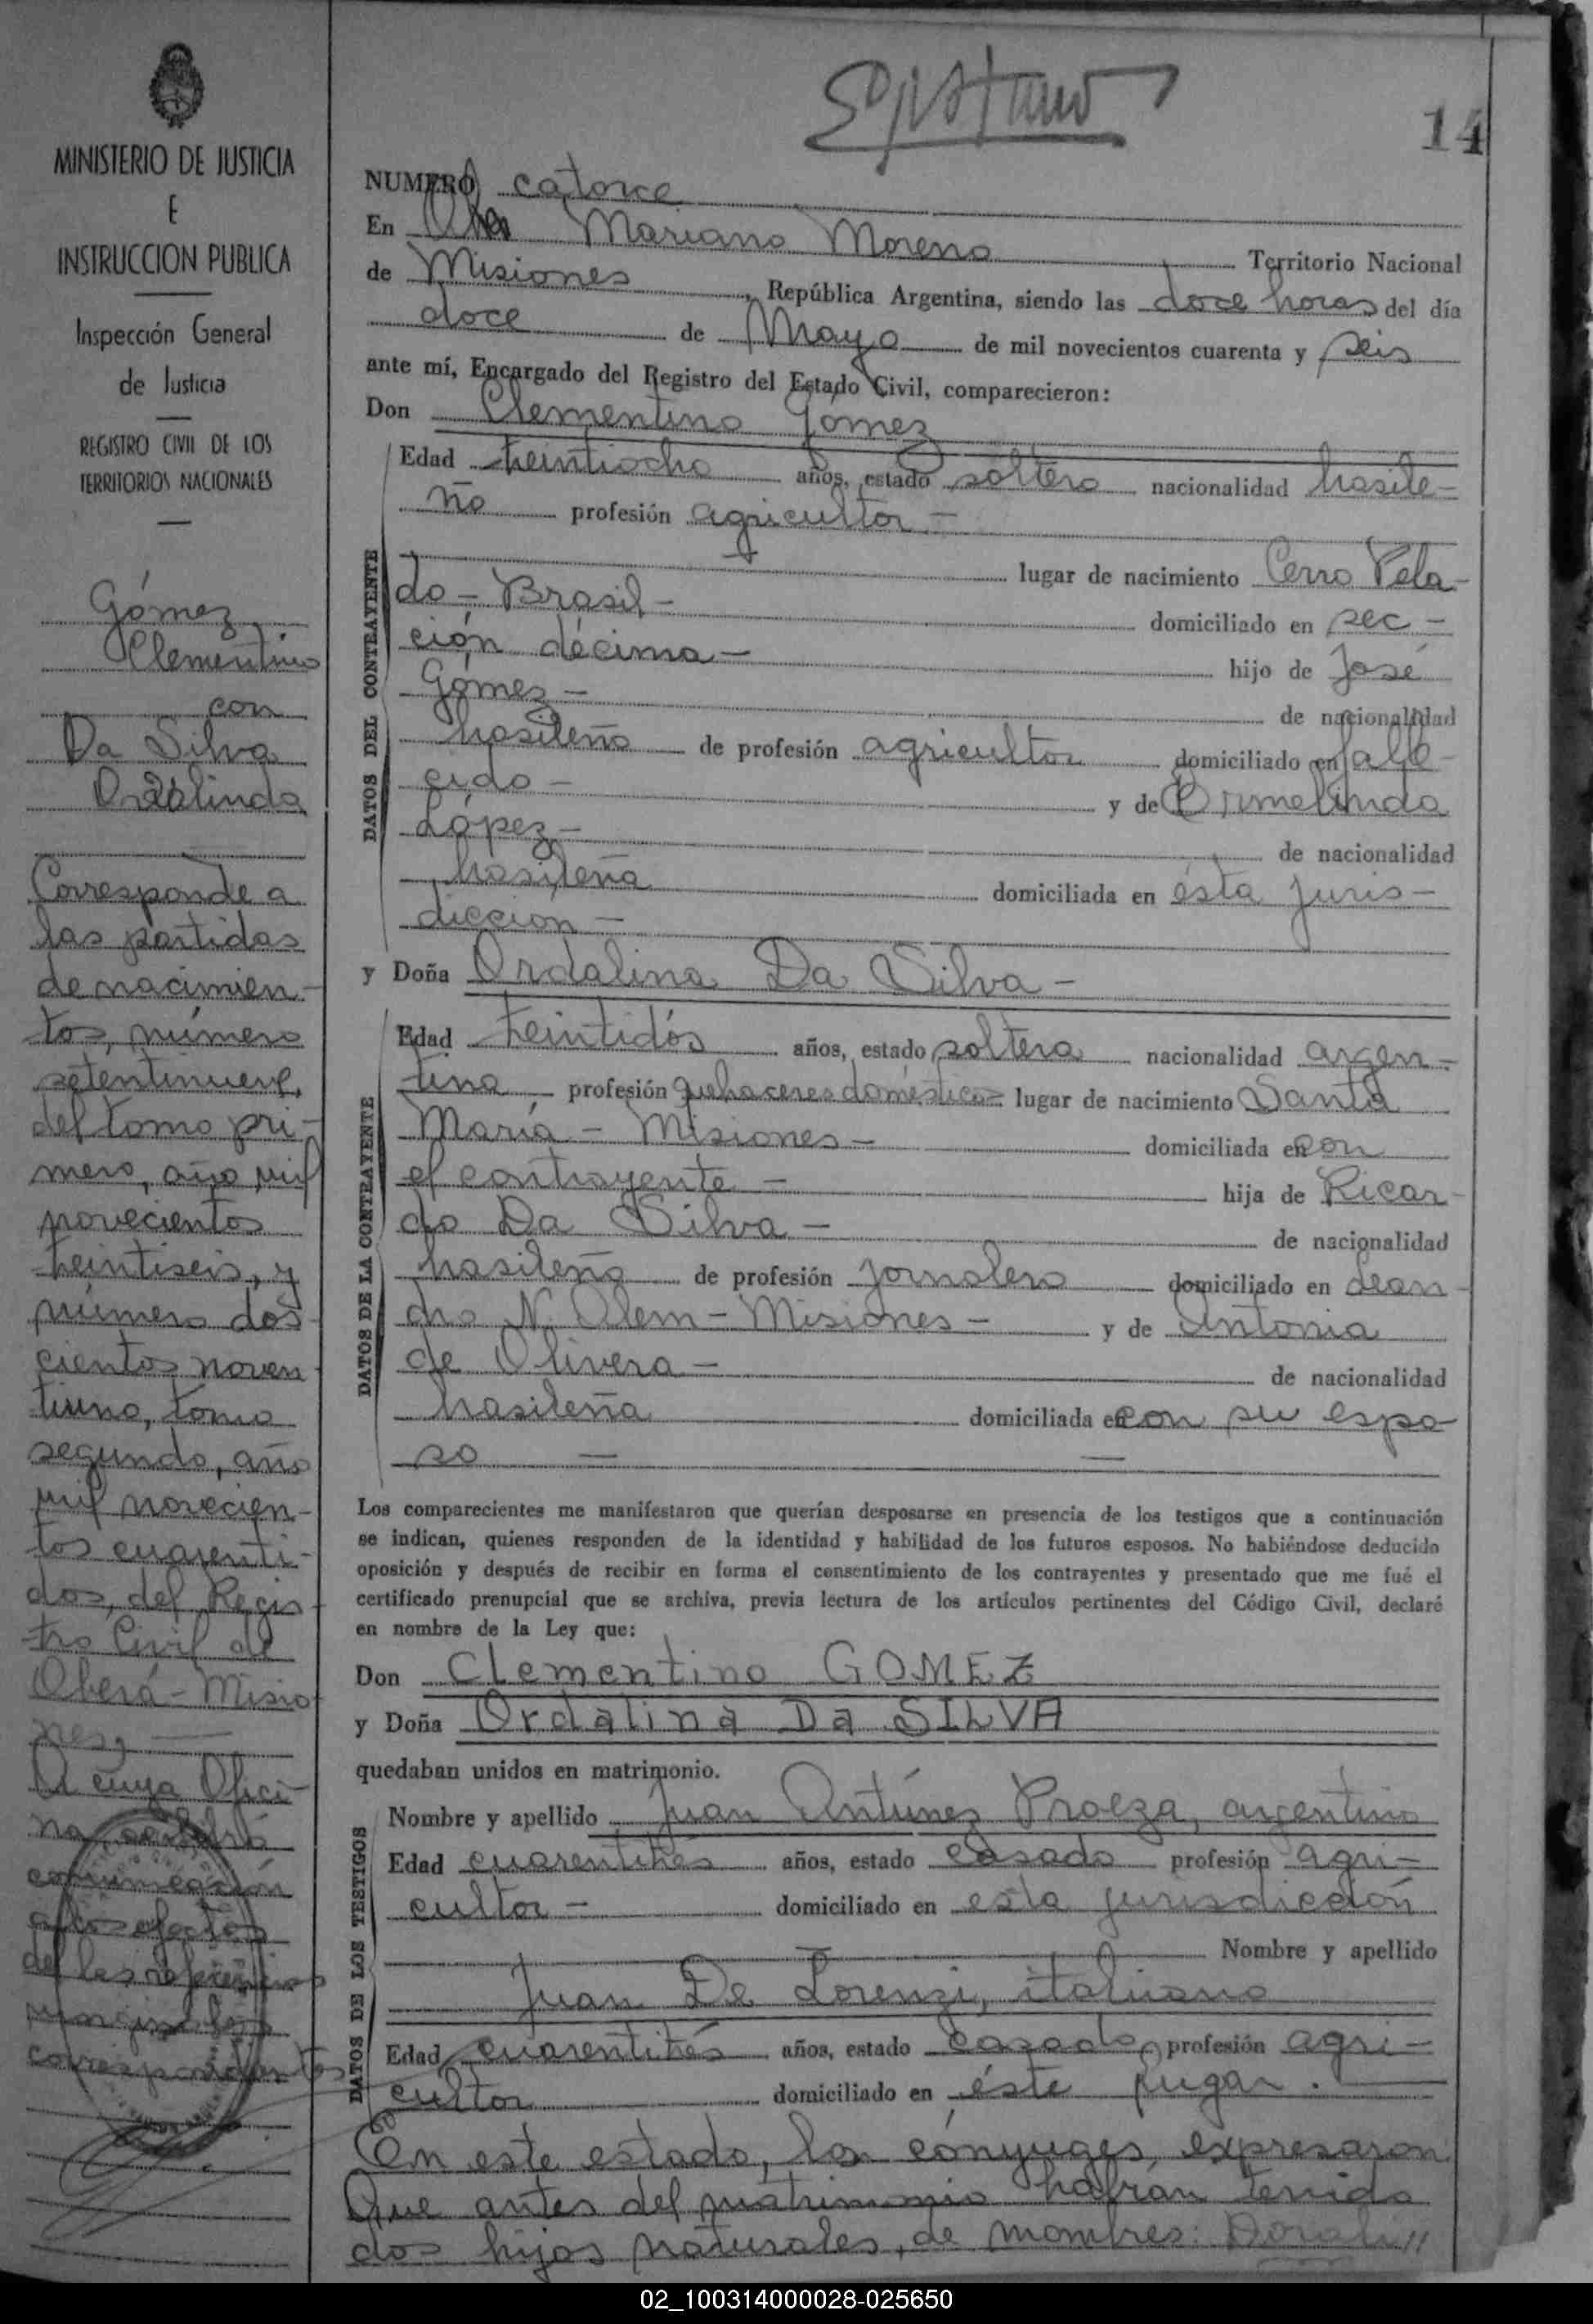 14
MINISTERIO DE JUSTICIA
E
INSTRUCCION PUBLICA
Inspección General
de Justicia
REGISTRO CIVIL DE LOS
TERRITORIOS NACIONALES
Gómez
Clementino
con
Da Silva
Corresponde a
las partidas
de nacimien-
tos, número
setentinueve,
del tomo pri-
mero, año mil
novecientos
treintiseis, y
número dos-
cientos noven-
tiuno, tomo
segundo, año
mil novecien-
tos cuarenti-
dos, del Regis-
tro Civil de
Oberá - Misio-
nes,
A cuya Ofici-
na
comunicación
a los efectos
de las referencias
marginales
correspondientes
NUMERO catorce
En Mariano Moreno Territorio Nacional
de Misiones, República Argentina, siendo las doce horas del día
doce de Mayo de mil novecientos cuarenta y seis
ante mí, Encargado del Registro del Estado Civil, comparecieron:
Don Clementino Gómez
DATOS DEL CONTRAYENTE
Edad treintiocho años, estado soltero nacionalidad brasile-
ño profesión agricultor -
lugar de nacimiento Cerro Pela-
do - Brasil - domiciliado en sec -
ción décima - hijo de José
Gómez - de nacionalidad
brasileño de profesión agricultor domiciliado en falle-
cido - y de Ormelinda
López - de nacionalidad
brasileña domiciliada en ésta juris -
dicción -
y Doña Ordalina Da Silva -
DATOS DE LA CONTRAYENTE
Edad treintidós años, estado soltera nacionalidad argen-
tina profesión quehaceres domésticos lugar de nacimiento Santa
María - Misiones - domiciliada en con
el contrayente - hija de Ricar-
do Da Silva - de nacionalidad
brasileño de profesión jornalero domiciliado en Lean-
dro N. Alem - Misiones - y de Antonia
de Olivera - de nacionalidad
brasileña domiciliada en con su espo-
so — —
Los comparecientes me manifestaron que querían desposarse en presencia de los testigos que a continuación
se indican, quienes responden de la identidad y habilidad de los futuros esposos. No habiéndose deducido
oposición y después de recibir en forma el consentimiento de los contrayentes y presentado que me fué el
certificado prenupcial que se archiva, previa lectura de los artículos pertinentes del Código Civil, declaré
en nombre de la Ley que:
Don Clementino GOMEZ
y Doña Ordalina Da SILVA
quedaban unidos en matrimonio.
DATOS DE LOS TESTIGOS
Nombre y apellido Juan Antúnez Proeza, argentino
Edad cuarentitrés años, estado casado profesión agri-
cultor - domiciliado en esta jurisdicción
Nombre y apellido
Juan De Lorenzi, italiano
Edad cuarentitrés años, estado casado, profesión agri-
cultor domiciliado en éste lugar.
En este estado, los cónyuges, expresaron:
Que antes del matrimonio habían tenido
dos hijos naturales, de nombres: Dorali"
02_100314000028-025650